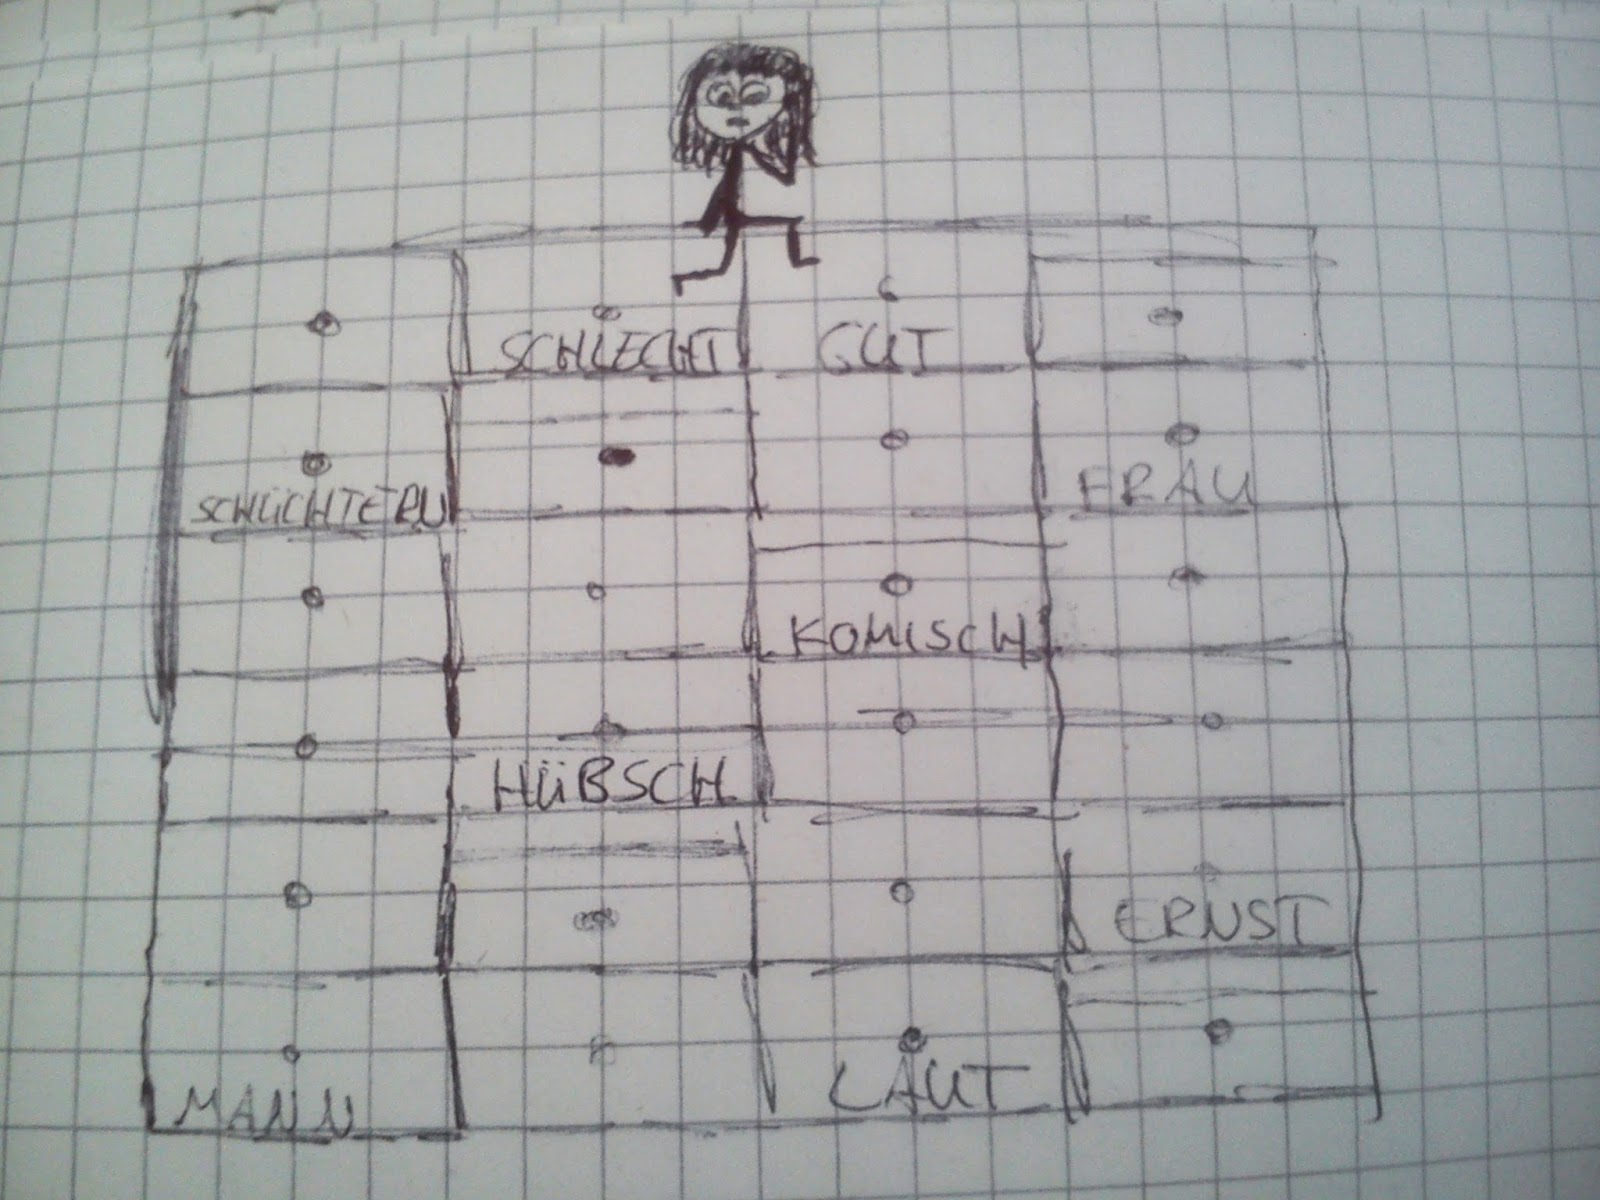 SCHLECHT
GUT
SCHÜCHTERN
FRAU
KOMISCH
HÜBSCH
ERNST
MANN
LAUT